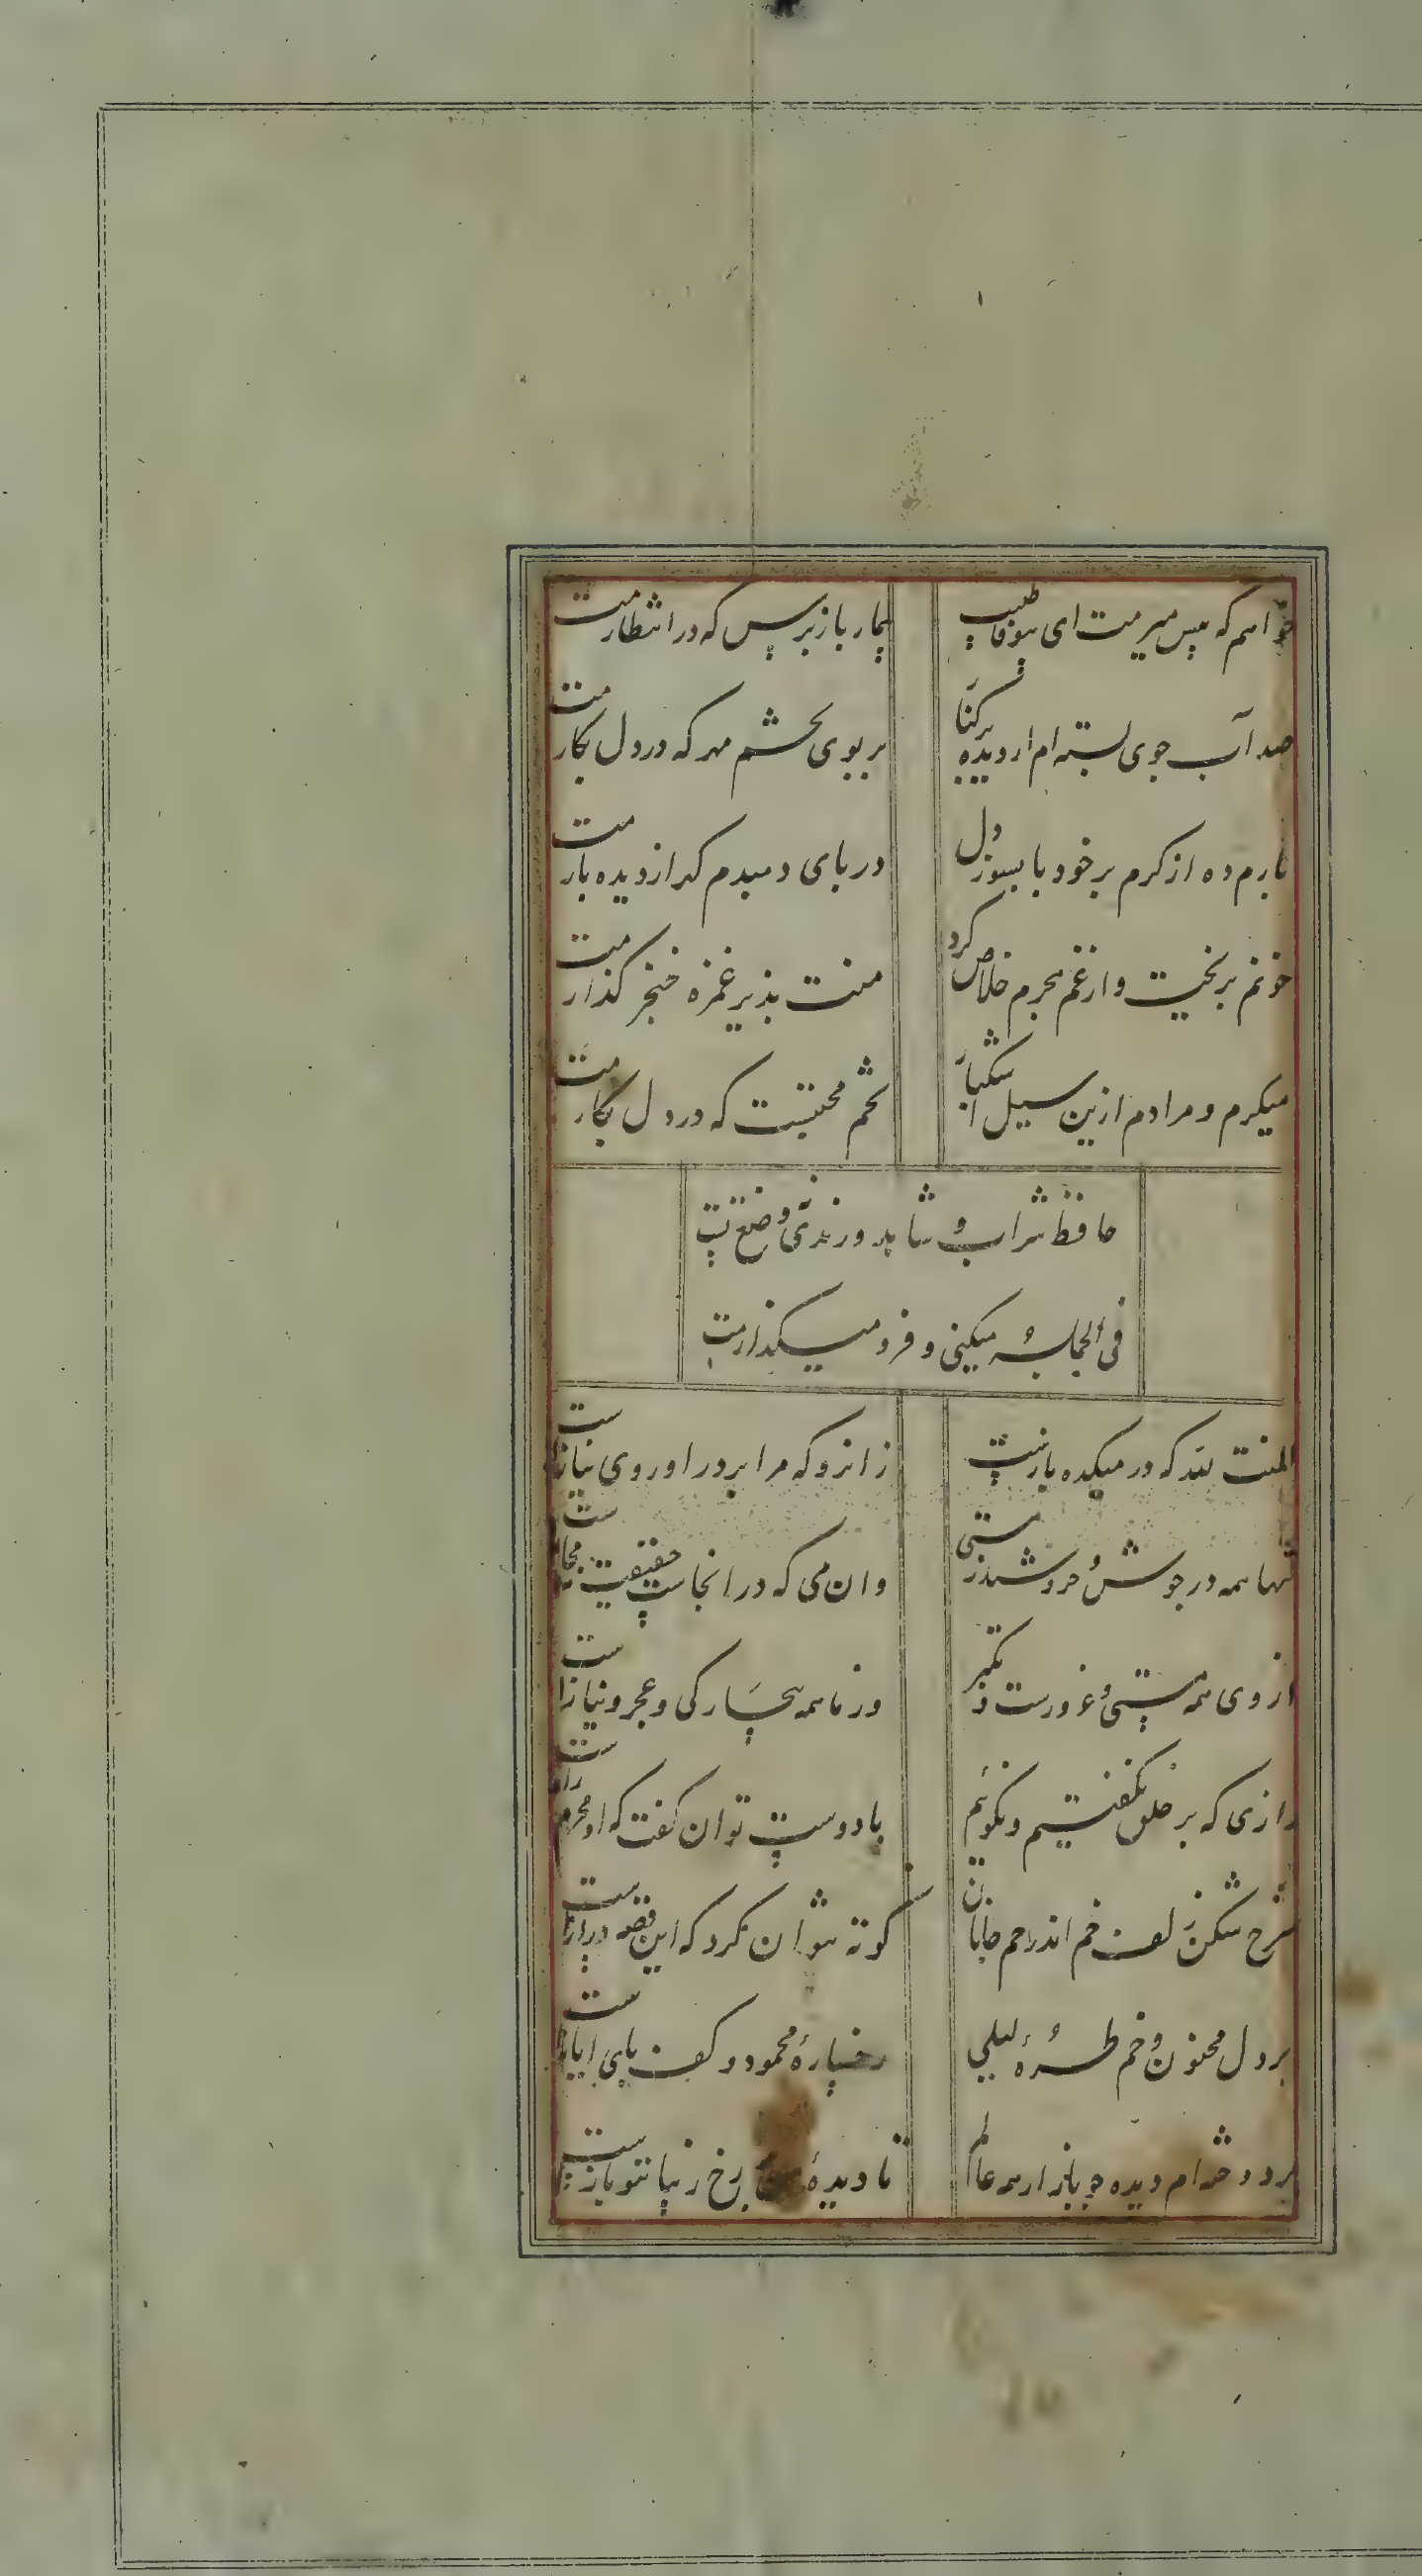 خواهم که پیش میرمت ای بیوفا طبیب بیمار باز پرس که در انتظارمت
صد آب جوی بسته ام از دیده بر کنار بر بوی تخم مهر که در دل بکارمت
بارم ده از کرم بر خود تا بسوز دل در پای دمبدم کهر از دیده بارمت
خونم بریخت و از غم هجرم خلاص کرد منت پذیر غمزه خنجر کذارمت
میکریم و مرادم ازین سیل اشکبار تخم محبتیست که در دل بکارمت
حافظ شراب و شاهد و رندی نه وضع تست
فی الجمله میکنی و فرو میکذارمت
المنت لله که در میکده بازست زانرو که مرا بر در او روی نیازست
خمها همه در جوش و خروشند ز مستی وان می که در انجاست حقیقت نه مجازست
از وی همه مستی و غرورست و تکبر وز ما همه بیچارکی و عجز و نیازست
رازی که بر خلق نکفتیم و نکوئیم با دوست توان کفت که او محرم رازست
شرح شکن زلف خم اندر خم جانان کوته نتوان کرد که این قصه درازست
بر دل مجنون و خم طره لیلی رخساره محمود و کف پای ایازست
بر دوخته ام دیده چو باز از همه عالم تا دیده من بر رخ زیبا تو بازست